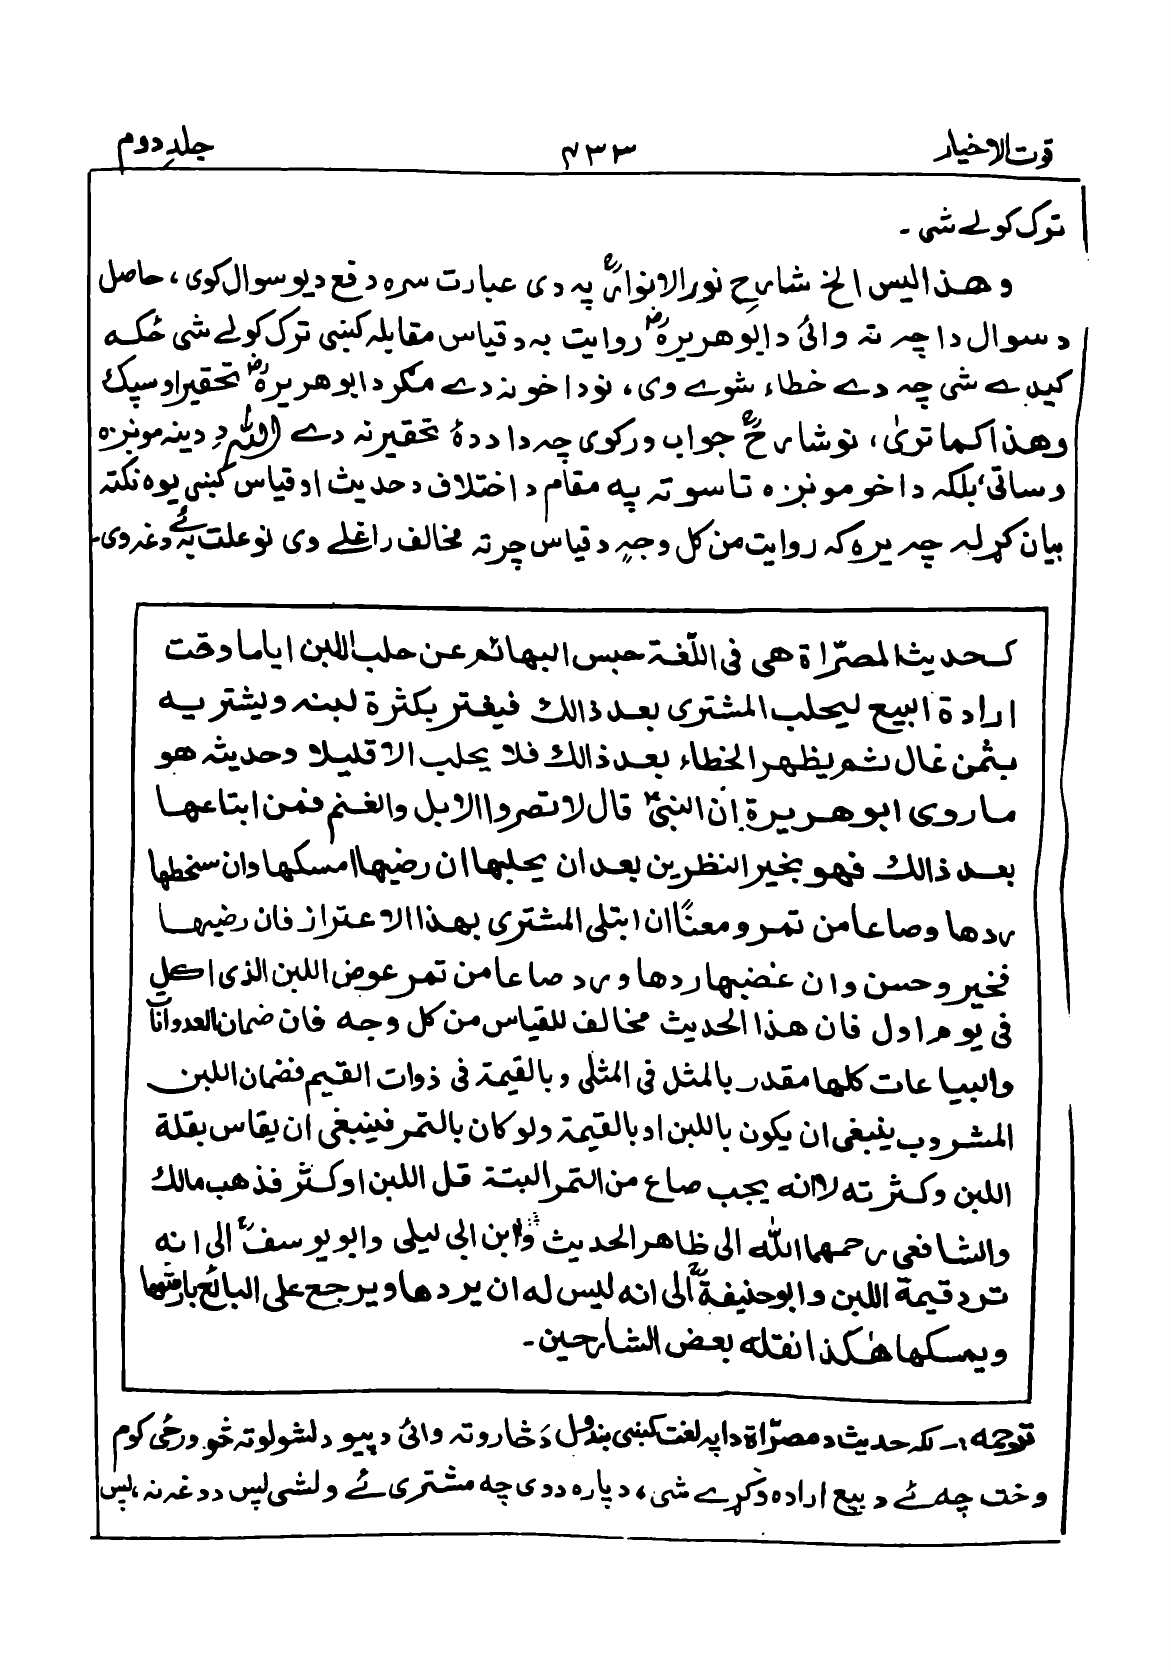 قوت الاخیار ۴۳۳ جلدِ دوم
ترک کولے شی ۔
وهذا لیس الخ شارحِ نور الانوارؒ په دی عبارت سره دفع دیو سوال کوی، حاصل
د سوال دا چه ته وائی د ابو هریرهؓ روایت به د قیاس مقابله کښی ترک کولے شی ځکه
کیدے شی چه دے خطاء شوے وی، نو دا خو نه دے مگر د ابو هریرهؓ تحقیر او سپک
وهذا کما تریٰ، نو شارحؒ جواب ورکوی چه دا د دهٔ تحقیر نه دے (الله دِ دینه مونږه
وساتی) بلکه دا خو مونږه تاسو ته په مقام د اختلاف د حدیث او قیاس کښی یوه نکته
بیان کړله چه یره که روایت من کل وجهٍ د قیاس چرته مخالف راغلے دی نو علت به ئے دغه وی۔
کحدیث المصرّاة هی فی اللّغة حبس البهائم عن حلب اللبن ایاما وقت
ارادة البیع لیحلب المشتری بعد ذالک فیغتر بکثرة لبنه ویشتریه
بثمن غال ثم یظهر الخطاء بعد ذالک فلا یحلب الا قلیلا وحدیثه هو
ما روی ابو هریرة ان النبیؐ قال لا تصروا الابل والغنم فمن ابتاعها
بعد ذالک فهو بخیر النظرین بعد ان یحلبها ان رضیها امسکها وان سخطها
ردها وصاعا من تمر ومعنًا ان ابتلی المشتری بهذا الاعتراز فان رضیها
فخیر وحسن وان غضبها ردها ورد صاعا من تمر عوض اللبن الذی اکل
فی یوم اول فان هذا الحدیث مخالف للقیاس من کل وجه فان ضمان العدوانات
والبیاعات کلها مقدر بالمثل فی المثلی وبالقیمة فی ذوات القیم فضمان اللبن
المشروب ینبغی ان یکون باللبن او بالقیمة ولو کان بالتمر فینبغی ان یقاس بقلة
اللبن وکثرته لا انه یجب صاع من التمر البتة قل اللبن او کثر فذهب مالک
والشافعی رحمهما الله الی ظاهر الحدیث وابن ابی لیلی وابو یوسفؒ الی انه
ترد قیمة اللبن وابو حنیفةؒ الی انه لیس له ان یردها ویرجع علی البائع بارشها
ویمسکها هٰکذا نقله بعض الشارحین۔
ترجمه :۔ لکه حدیث د مصرّاة دا په لغت کښی بندول د ځاروو ته وائی د پیو د لشولو ته څو ورځی کوم
وخت چه ئے د بیع اراده وکړے شی، د پاره د دی چه مشتری ئے ولشی لپس د دغه نه، لپس